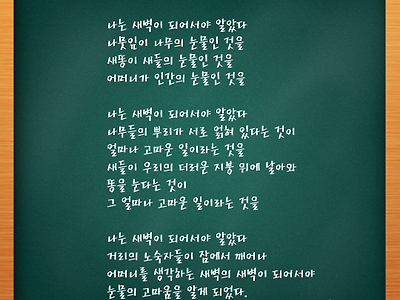 나는 새벽이 되어서야 알았다
나뭇잎이 나무의 눈물인 것을
새똥이 새들의 눈물인 것을
어머니가 인간의 눈물인 것을
나는 새벽이 되어서야 알았다
나무들의 뿌리가 서로 얽혀 있다는 것이
얼마나 고마운 일이라는 것을
새들이 우리의 더러운 지붕 위에 날아와
똥을 눈다는 것이
그 얼마나 고마운 일이라는 것을
나는 새벽이 되어서야 알았다
거리의 노숙자들이 잠에서 깨어나
어머니를 생각하는 새벽의 새벽이 되어서야
눈물의 고마움을 알게 되었다.